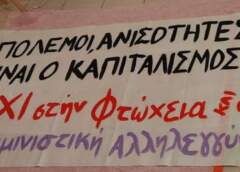 ΠΟΛΕΜΟΙ, ΑΝΙΣΟΤΗΤΕΣ
ΝΑΙ Ο ΚΑΠΙΤΑΛΙΣΜΟΣ
ΧΙ στήν Φτώχεια
μινιστική Αλληλεγγύ